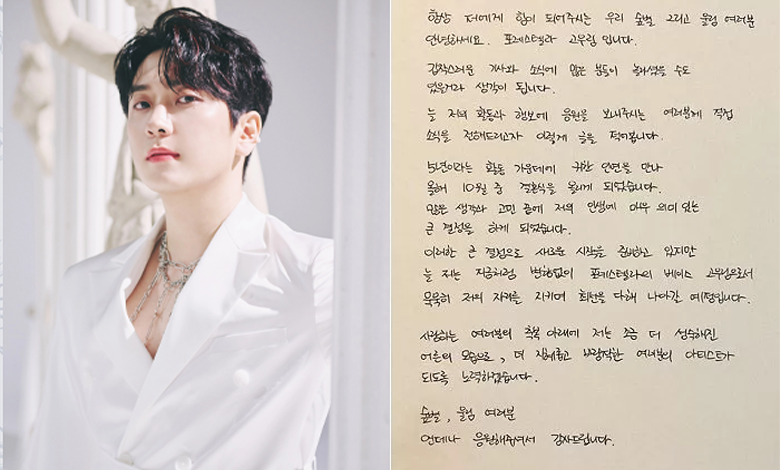 항상 저에게 힘이 되어주시는 우리 숲별 그리고 울림 여러분
안녕하세요. 포레스텔라 고우림 입니다.
갑작스러운 기사와 소식에 많은 분들이 놀라셨을 수도
있었겠다 생각이 됩니다.
늘 저의 활동과 행보에 응원을 보내주시는 여러분께 직접
소식을 전해드리고자 이렇게 글을 적어봅니다.
5년이라는 활동 가운데에 귀한 인연을 만나
올해 10월 중 결혼식을 올리게 되었습니다.
많은 생각과 고민 끝에 저의 인생에 매우 의미 있는
큰 결정을 하게 되었습니다.
이러한 큰 결정으로 새로운 시작을 준비하고 있지만
늘 저는 지금처럼 변함없이 포레스텔라의 베이스 고우림으로서
묵묵히 저의 자리를 지키며 최선을 다해 나아갈 예정입니다.
사랑하는 여러분의 축복 아래에 저는 조금 더 성숙해진
어른의 모습으로, 더 지혜롭고 바람직한 여러분의 아티스트가
되도록 노력하겠습니다.
숲별, 울림 여러분
언제나 응원해주셔서 감사드립니다.